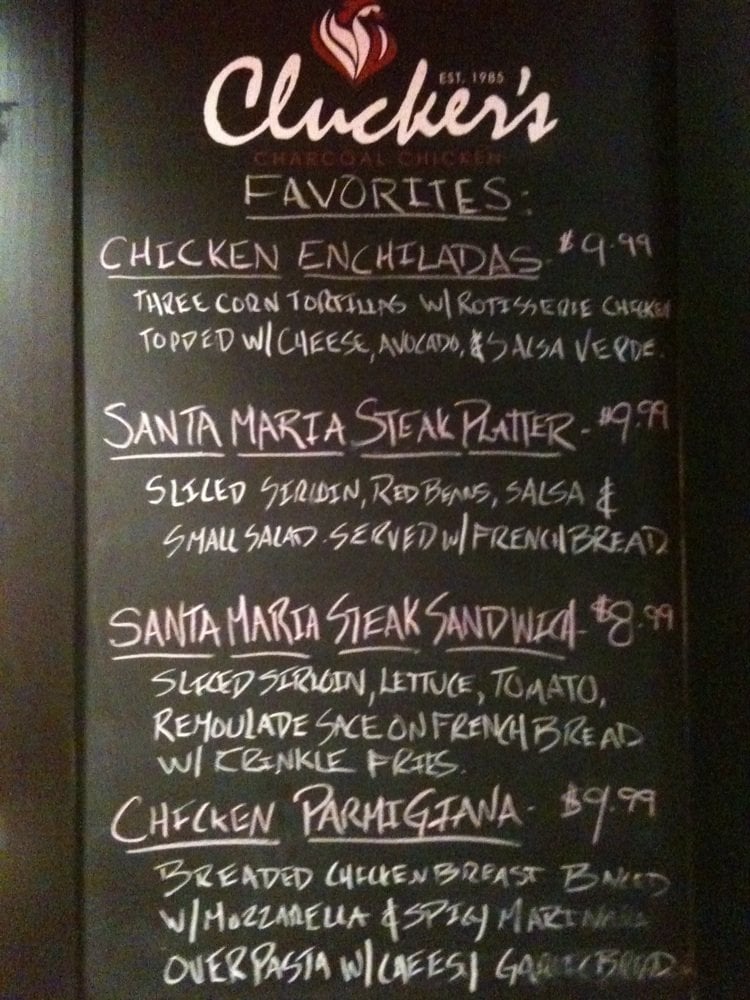 EST. 1985
Clucker's
CHARCOAL CHICKEN
FAVORITES:
CHICKEN ENCHILADAS - $9.99
THREE CORN TORTILLAS W/ ROTISSERIE CHICKEN
TOPPED W/ CHEESE, AVOCADO, & SALSA VERDE.
SANTA MARIA STEAK PLATTER - $9.99
SLICED SIRLOIN, RED BEANS, SALSA &
SMALL SALAD. SERVED W/ FRENCH BREAD
SANTA MARIA STEAK SANDWICH - $8.99
SLICED SIRLOIN, LETTUCE, TOMATO,
REMOULADE SACE ON FRENCH BREAD
W/ CRINKLE FRIES.
CHICKEN PARMIGIANA - $9.99
BREADED CHICKEN BREAST BAKED
W/ MOZZARELLA & SPICY MARINARA
OVER PASTA W/ CHEESY GARLIC BREAD.